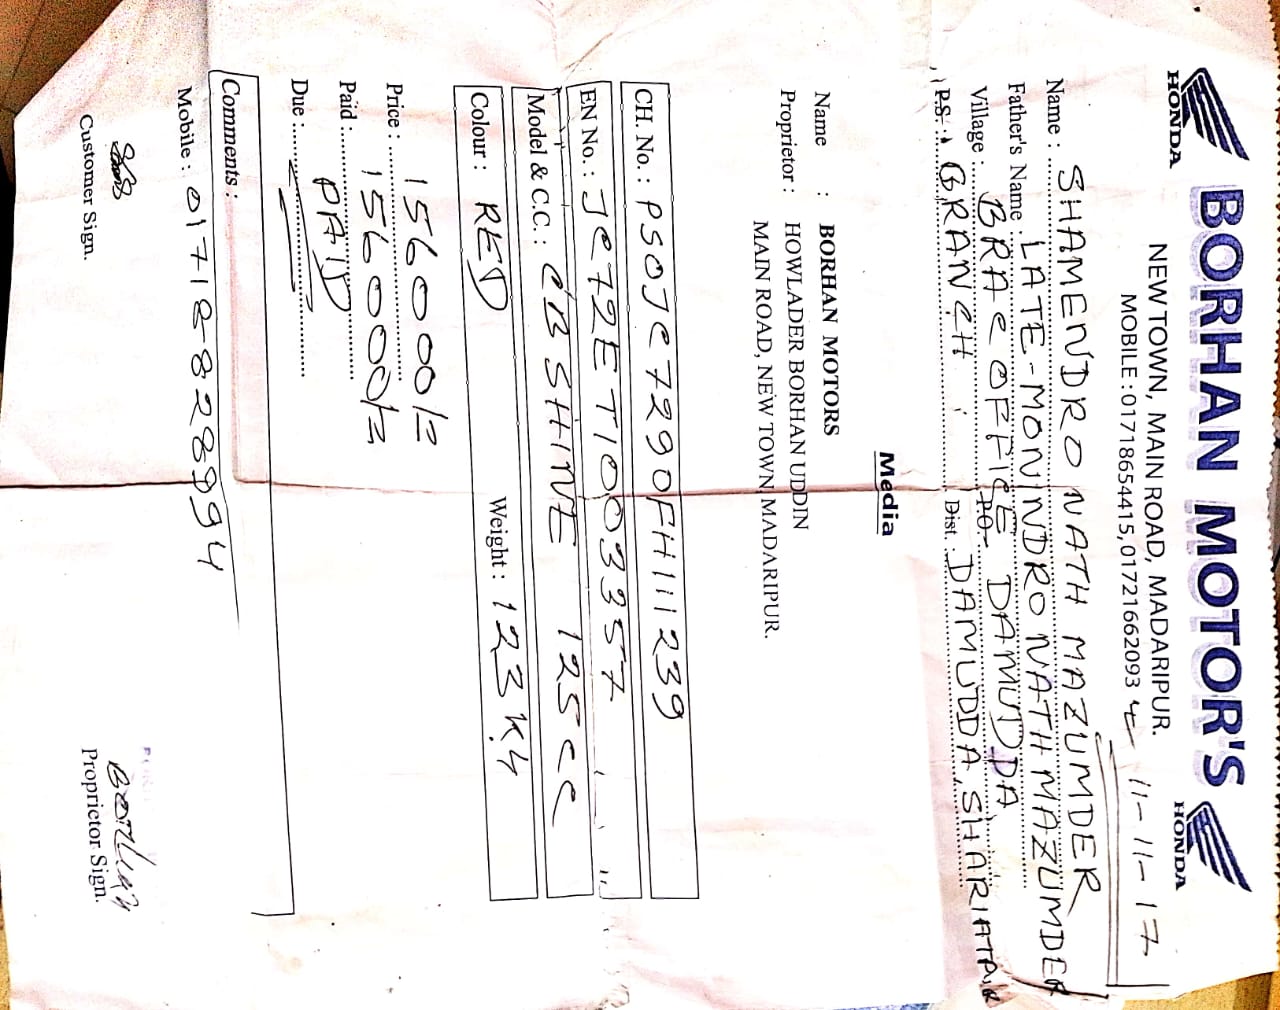 HONDA BORHAN MOTOR'S HONDA
NEW TOWN, MAIN ROAD, MADARIPUR.
MOBILE : 01718654415, 01721662093
11-11-17
Name : SHAMENDRO NATH MAZUMDER
Father's Name : LATE-MONINDRO NATH MAZUMDER
Village : BRAC OFFICE P.O- DAMUDDA
P.S : BRANCH Dist. DAMUDDA, SHARIATPUR
Media
Name : BORHAN MOTORS
Proprietor : HOWLADER BORHAN UDDIN
MAIN ROAD, NEW TOWN, MADARIPUR.
CH. No. : PSOJC7290FH111239
EN No. : JC72ET1003357
Model & C.C. : CB SHINE 125cc
Colour : RED Weight : 123 K.g
Price : 156000/=
Paid : 156000/=
Due : PAID
Comments :
Mobile : 01718828994
Customer Sign.
Proprietor Sign.